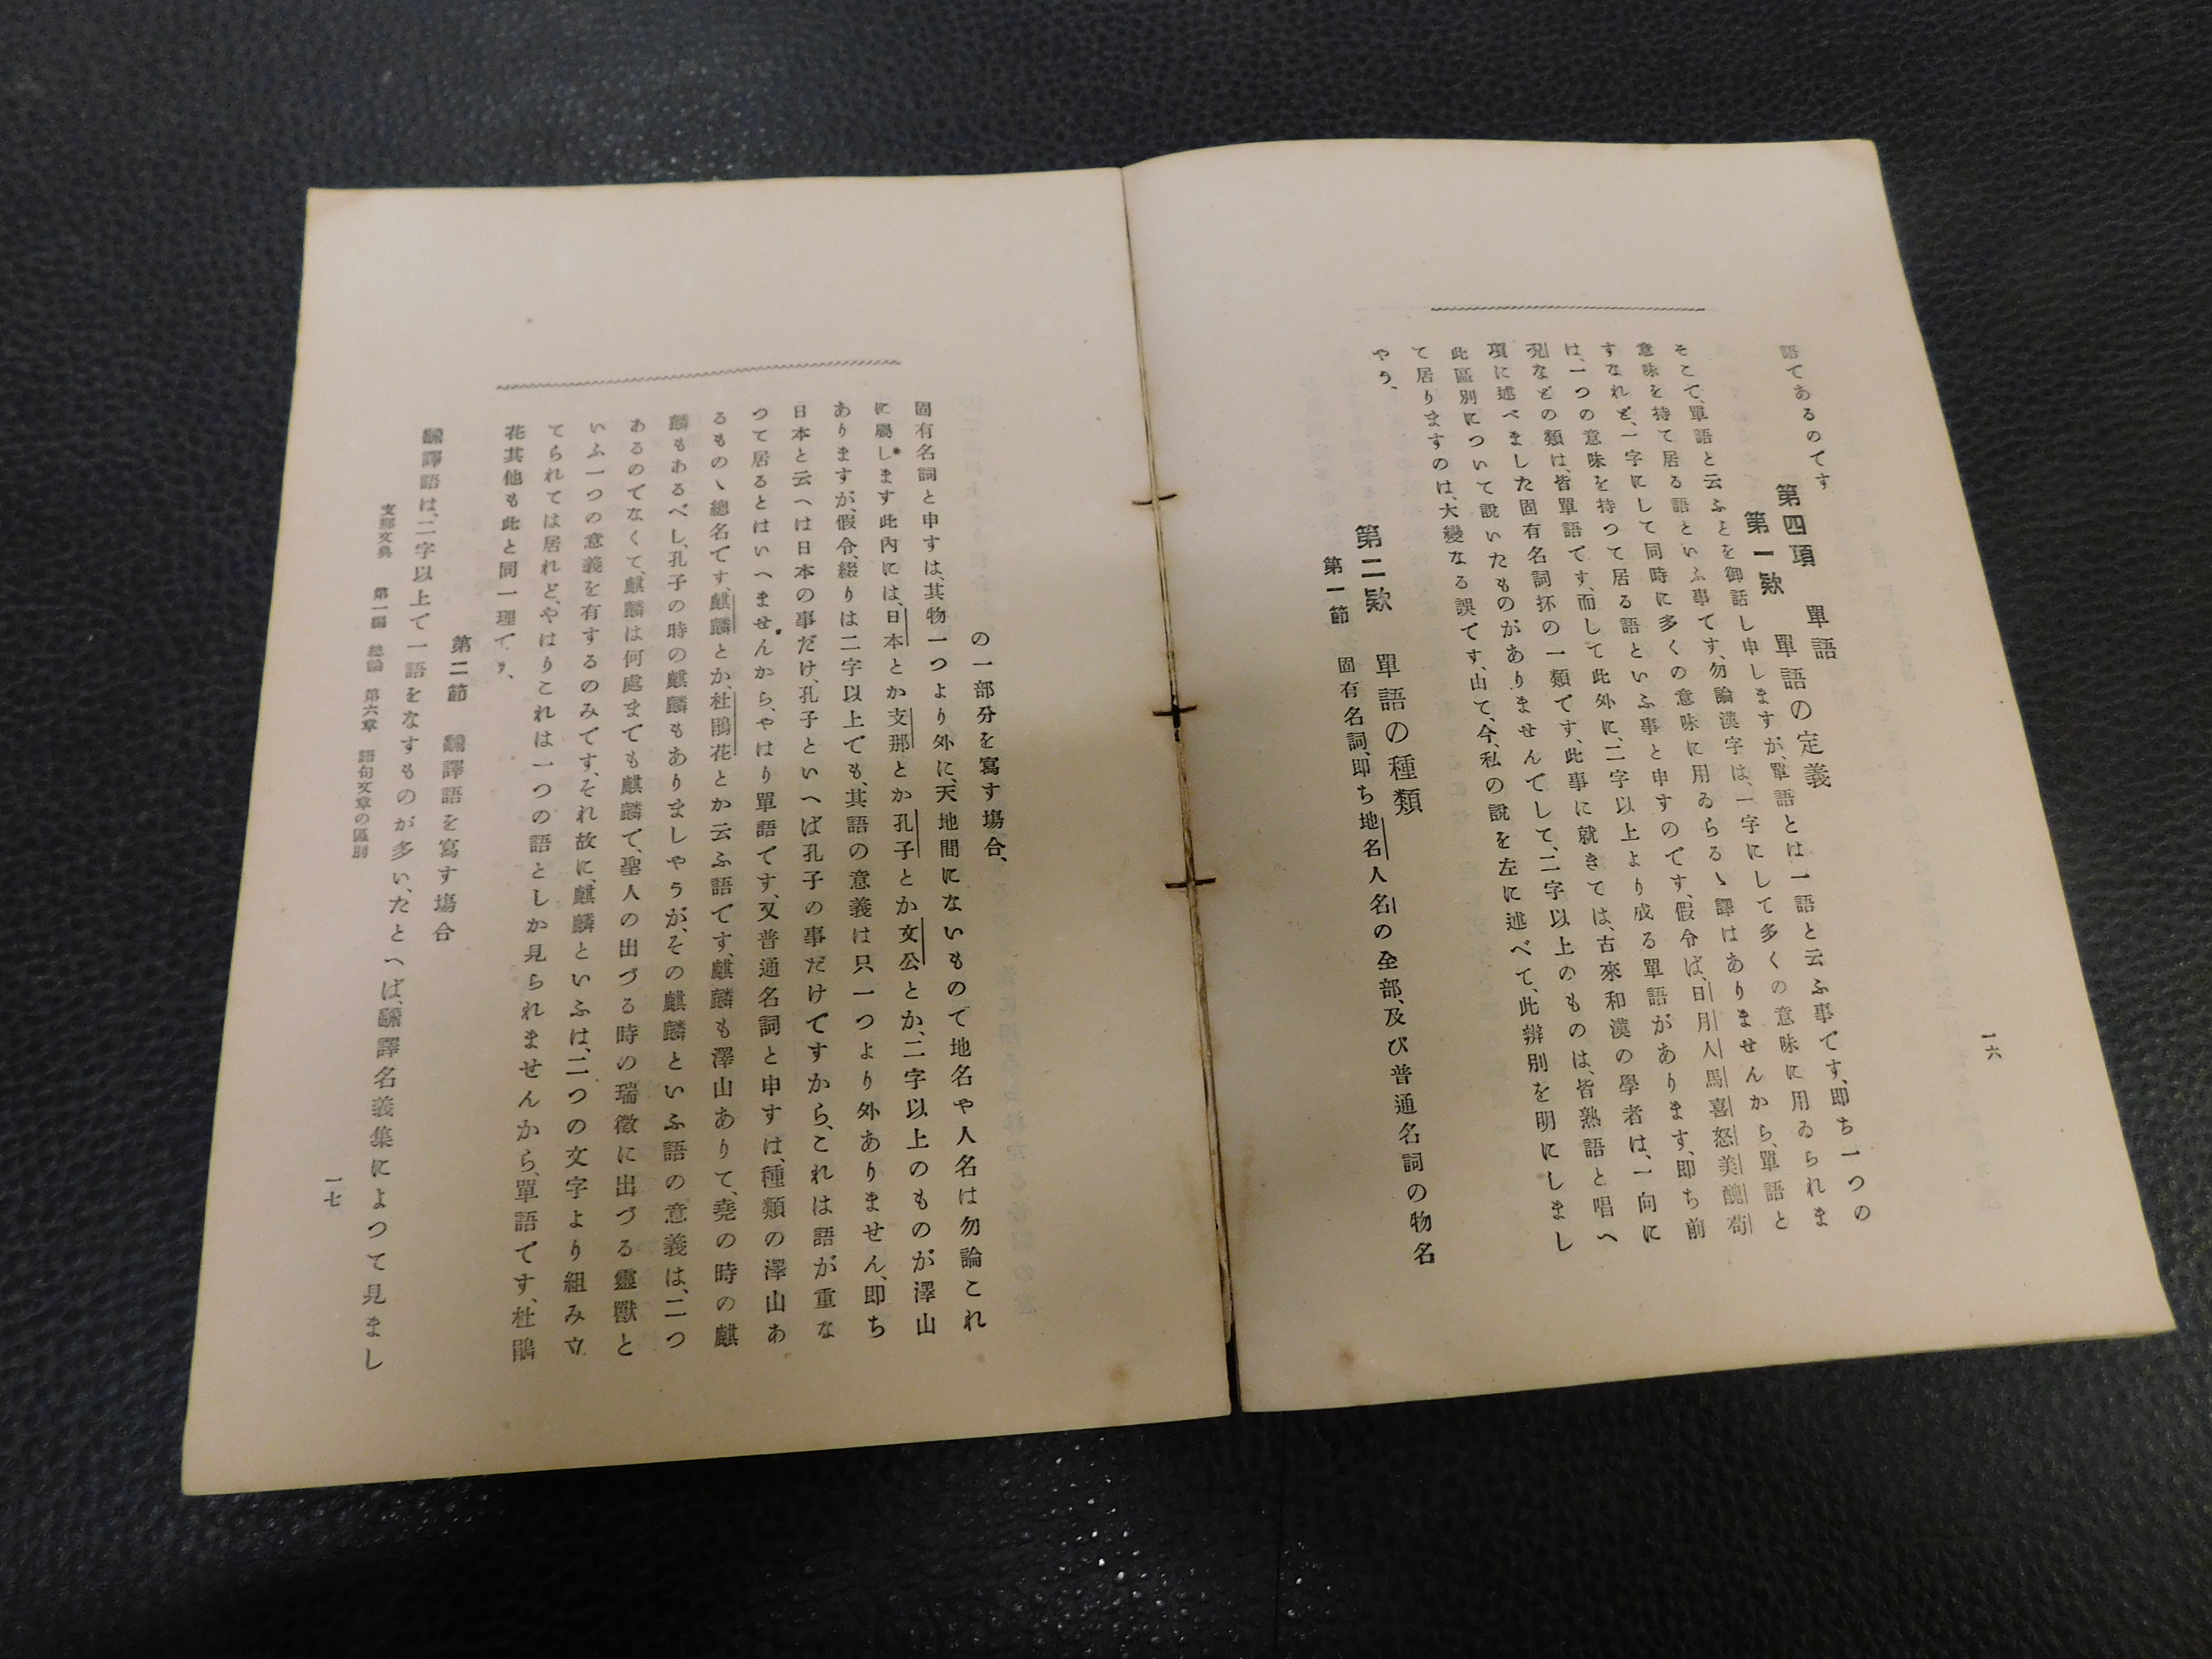 語てあるのてす
第四項　單語
第一欵　單語の定義
そこて、單語と云ふとを御話し申しますが、單語とは一語と云ふ事てす、即ち一つの
意味を持て居る語といふ事てす、勿論漢字は、一字にして多くの意味に用ゐられま
すなれど、一字にして同時に多くの意味に用ゐらるゝ譯はありませんから、單語と
は、一つの意味を持つて居る語といふ事と申すのてす、假令ば、日月人馬喜怒美醜苟
況などの類は、皆單語てす、而して此外に、二字以上より成る單語があります、即ち前
項に述べました固有名詞抔の一類てす、此事に就きては、古來和漢の學者は、一向に
此區別について說いたものがありませんてして、二字以上のものは、皆熟語と唱へ
て居りますのは、大變なる誤てす、由て、今、私の說を左に述べて、此辨別を明にしまし
やう、
第二欵　單語の種類
第一節　固有名詞、即ち地名人名の全部、及び普通名詞の物名
一六
の一部分を寫す塲合、
固有名詞と申すは、其物一つより外に、天地間にないもので地名や人名は勿論これ
に屬します此內には、日本とか支那とか孔子とか文公とか、二字以上のものが澤山
ありますが、假令、綴りは二字以上ても、其語の意義は只一つより外ありません、即ち
日本と云へは日本の事だけ、孔子といへば孔子の事だけてすから、これは語が重な
つて居るとはいへませんから、やはり單語てす、又普通名詞と申すは、種類の澤山あ
るものゝ總名てす、麒麟とか、杜鵑花とか云ふ語てす、麒麟も澤山ありて、堯の時の麒
麟もあるべし、孔子の時の麒麟もありましやうが、その麒麟といふ語の意義は、二つ
あるのてなくて、麒麟は何處までも麒麟て、聖人の出づる時の瑞徵に出づる靈獸と
いふ一つの意義を有するのみてす、それ故に、麒麟といふは、二つの文字より組み立
てられては居れど、やはりこれは一つの語としか見られませんから、單語てす、杜鵑
花其他も此と同一理てす、
第二節　飜譯語を寫す塲合
飜譯語は、二字以上て一語をなすものが多い、たとへば、飜譯名義集によつて見まし
支那文典　第一編　總論　第六章　語句文章の區別
一七